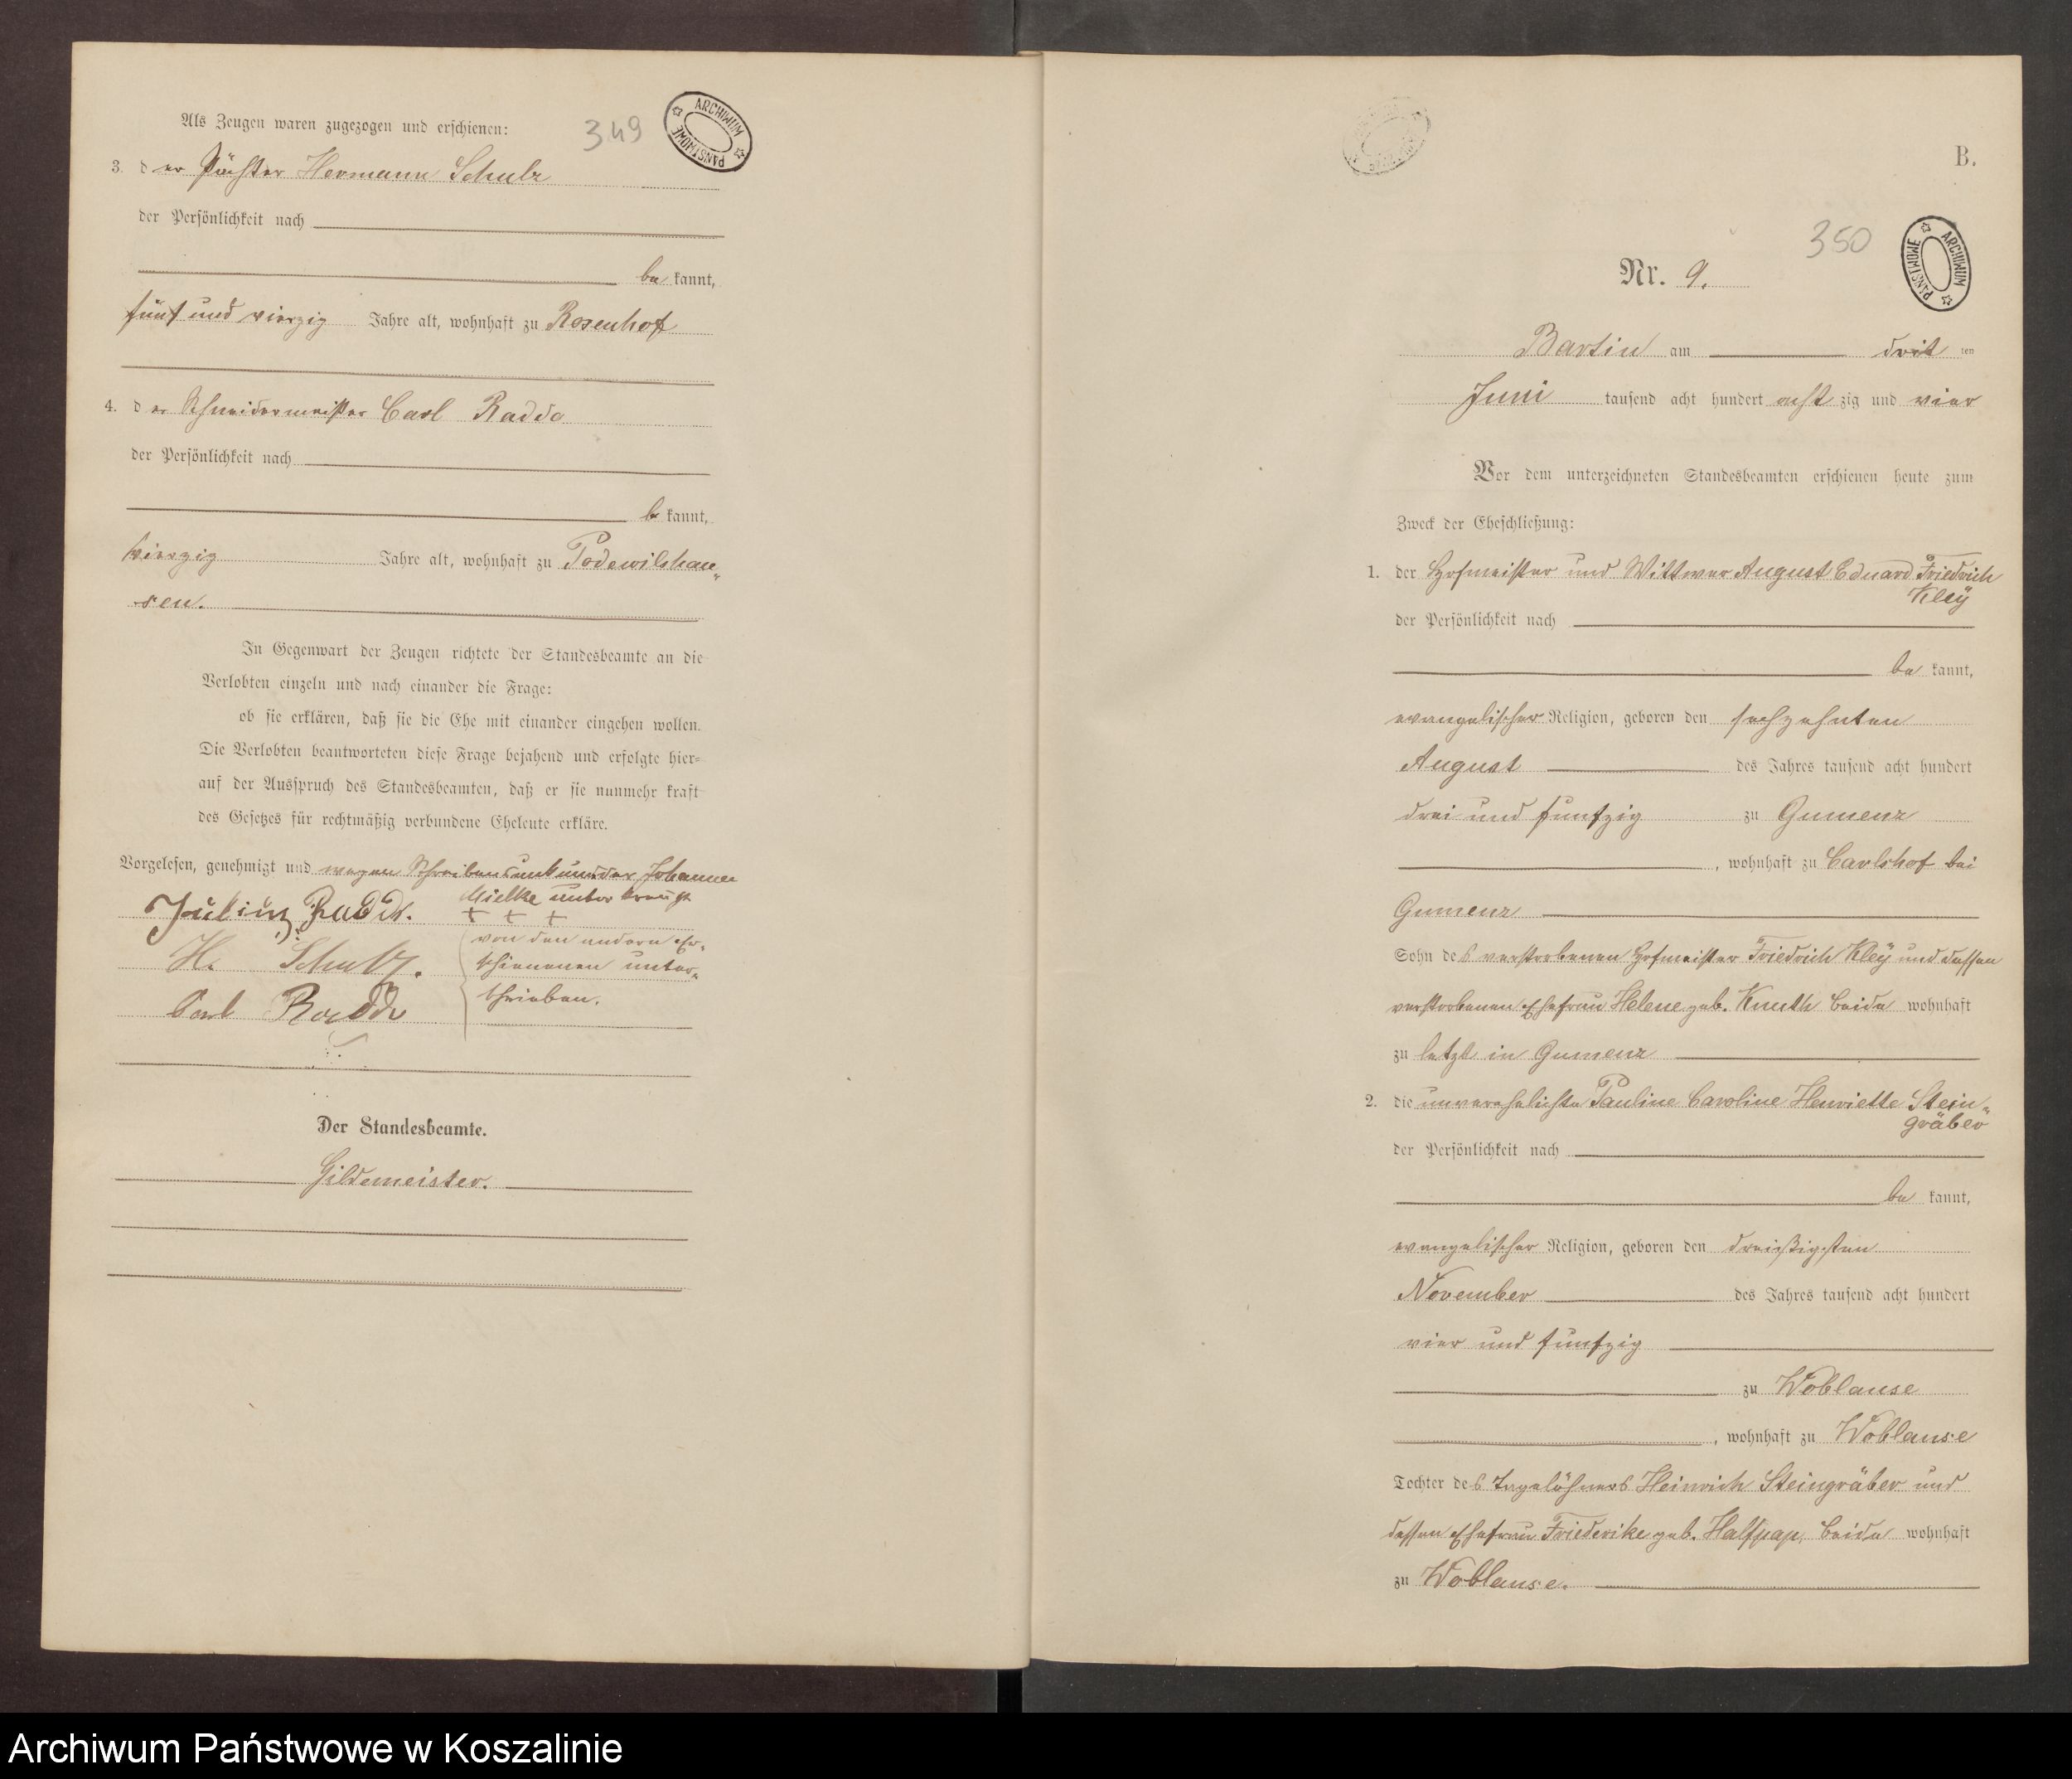 Als Zeugen waren zugezogen und erschienen:
349
ARCHIWUM PAŃSTWOWE
3. der Pächter Hermann Schulz
der Persönlichkeit nach
bekannt,
fünf und vierzig Jahre alt, wohnhaft zu Rosenhof
4. der Schneidermeister Carl Radde
der Persönlichkeit nach
bekannt,
vierzig Jahre alt, wohnhaft zu Podewilshau„
sen.
In Gegenwart der Zeugen richtete der Standesbeamte an die
Verlobten einzeln und nach einander die Frage:
ob sie erklären, daß sie die Ehe mit einander eingehen wollen.
Die Verlobten beantworteten diese Frage bejahend und erfolgte hier=
auf der Ausspruch des Standesbeamten, daß er sie nunmehr kraft
des Gesetzes für rechtmäßig verbundene Eheleute erkläre.
Vorgelesen, genehmigt und wegen Schreibensunkunde der Johanne
Mielke unterkreuzt
Julius Radde.
+ + +
H. Schulz.
von den andern Er„
schienenen unter„
schrieben.
Carl Radde
Der Standesbeamte.
Gildemeister.
B.
350
ARCHIWUM PAŃSTWOWE
Nr. 9.
Bartin am dritten
Juni tausend acht hundert achtzig und vier
Vor dem unterzeichneten Standesbeamten erschienen heute zum
Zweck der Eheschließung:
1. der Hofmeister und Wittwer August Eduard Friedrich
Kleÿ
der Persönlichkeit nach
bekannt,
evangelischer Religion, geboren den sechzehnten
August des Jahres tausend acht hundert
drei und fünfzig zu Gumenz
, wohnhaft zu Carlshof bei
Gumenz
Sohn des verstorbenen Hofmeister Friedrich Kleÿ und dessen
verstorbenen Ehefrau Helene geb. Knuth beide wohnhaft
zu letzt in Gumenz
2. die unverehelichte Pauline Caroline Henriette Stein„
gräber
der Persönlichkeit nach
bekannt,
evangelischer Religion, geboren den dreißigsten
November des Jahres tausend acht hundert
vier und fünfzig
zu Woblanse
, wohnhaft zu Woblanse
Tochter des Tagelöhners Heinrich Steingräber und
dessen Ehefrau Friederike geb. Halfpap, beide wohnhaft
zu Woblanse.
Archiwum Państwowe w Koszalinie